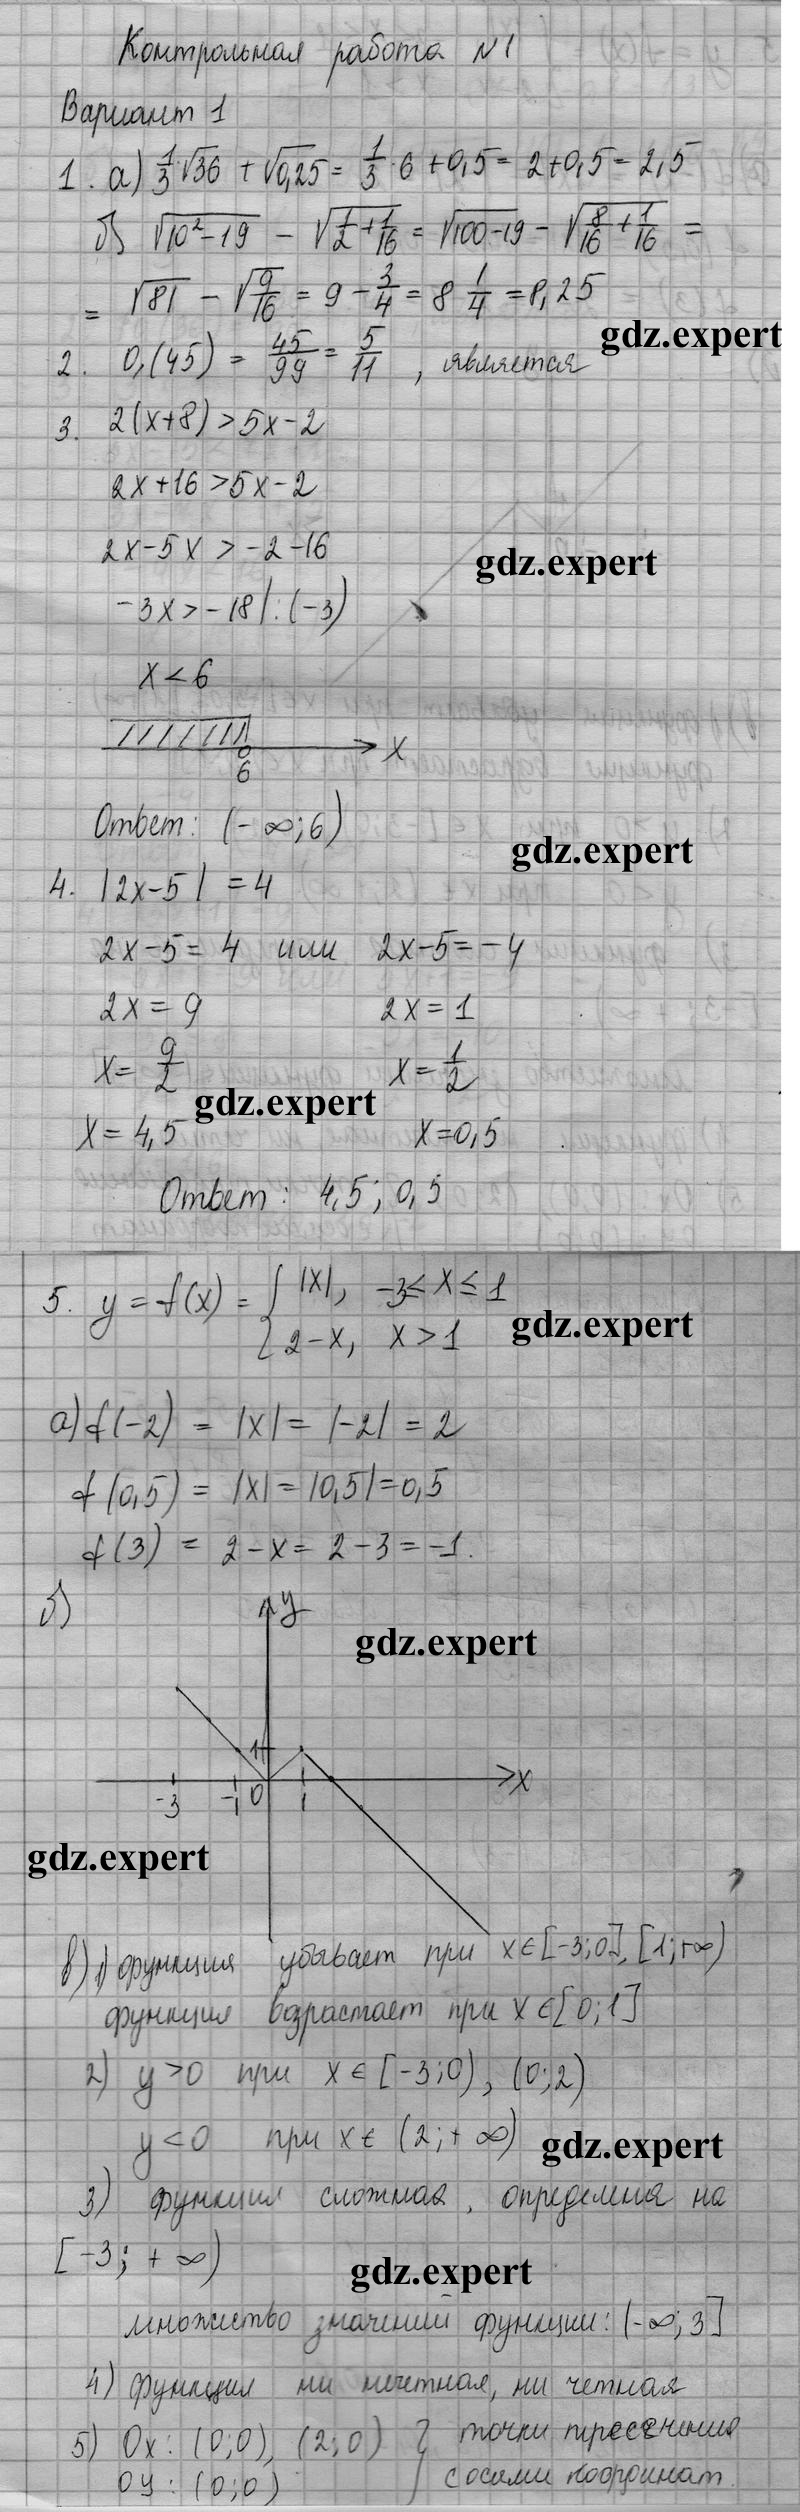 Контрольная работа №1
Вариант 1
1. а) 1/3 √36 + √0,25 = 1/3 · 6 + 0,5 = 2 + 0,5 = 2,5
б) √(10² - 19) - √(1/2 + 1/16) = √(100 - 19) - √(8/16 + 1/16) =
= √81 - √(9/16) = 9 - 3/4 = 8 1/4 = 8,25
gdz.expert
2. 0,(45) = 45/99 = 5/11, является
3. 2(x+8) > 5x - 2
2x + 16 > 5x - 2
2x - 5x > -2 - 16
gdz.expert
-3x > -18 | : (-3)
x < 6
x
6
Ответ: (-∞; 6)
gdz.expert
4. |2x - 5| = 4
2x - 5 = 4 или 2x - 5 = -4
2x = 9 2x = 1
x = 9/2 x = 1/2
gdz.expert
x = 4,5 x = 0,5
Ответ: 4,5; 0,5
5. y = f(x) = { |x|, -3 ≤ x ≤ 1
2 - x, x > 1
gdz.expert
а) f(-2) = |x| = |-2| = 2
f(0,5) = |x| = |0,5| = 0,5
f(3) = 2 - x = 2 - 3 = -1.
б)
y
gdz.expert
1
x
-3 -1 0 1
gdz.expert
в) 1) функция убывает при x ∈ [-3; 0], [1; +∞)
функция возрастает при x ∈ [0; 1]
2) y > 0 при x ∈ [-3; 0), (0; 2)
y < 0 при x ∈ (2; +∞)
gdz.expert
3) функция сложная, определена на
[-3; +∞)
gdz.expert
множество значений функции: (-∞; 3]
4) функция ни нечетная, ни четная
5) Ox: (0; 0), (2; 0) } точки пересечения
Oy: (0; 0) с осями координат.